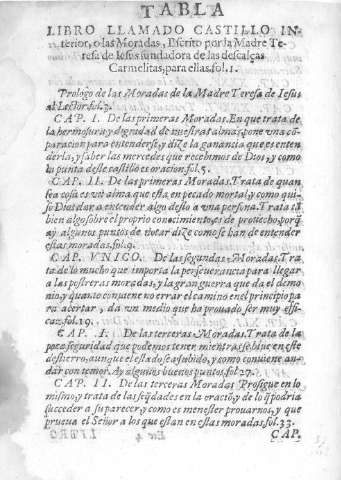 TABLA
LIBRO LLAMADO CASTILLO IN-
terior, o las Moradas, Escrito por la Madre Te-
resa de Iesus fundadora de las descalças
Carmelitas, para ellas. fol. 1.
Prologo de las Moradas de la Madre Teresa de Iesus
al Lector. fol. 3.
CAP. I. De las primeras Moradas. En que trata de
la hermosura y dignidad de nuestras almas, pone vna cõ-
paracion para entenderse, y dize la ganancia que es enten
derla, y saber las mercedes que recebimos de Dios, y como
la puerta deste castillo es oracion. fol. 5.
CAP. II. De las primeras Moradas. Trata de quan
fea cosa es vn alma que està en pecado mortal y como qui-
so Dios dar a entender algo desto a vna persona. Trata tã
bien algo sobre el proprio conocimiento, es de prouecho, porq̃
ay algunos puntos de notar dize como se han de entender
estas moradas. fol. 9.
CAP. VNICO. De las segundas Moradas. Tra
ta de lo mucho que importa la perseuerancia para llegar
a las postreras moradas, y la gran guerra que da el demo
nio, y quanto conuiene no errar el camino en el principio pa
ra acertar, da vn medio que ha prouado ser muy effi-
caz. fol. 19.
CAP. I. De las terceras Moradas. Trata de la
poca seguridad que podemos tener mientras se biue en este
destierro, aunque el estado sea subido, y como conuiene an-
dar con temor. Ay algunos buenos puntos. fol 27.
CAP. II. De las terceras Moradas Prosigue en lo
mismo, y trata de las seq̃dades en la oraciõ, y de lo q̃ podria
succeder a su parecer, y como es menester prouarnos, y que
prueua el Señor a los que estan en estas moradas. fol. 33.
CAP.